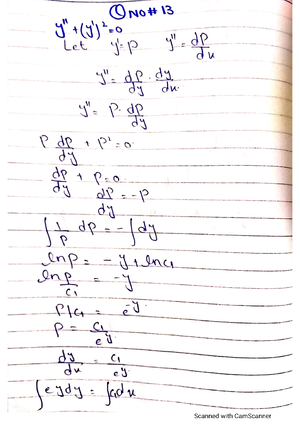 Q NO # 13
y'' + (y')² = 0
Let y' = P y'' = dP/dx
y'' = dP/dy · dy/dx
y'' = P · dP/dy
P dP/dy + P² = 0
dP/dy + P = 0
dP/dy = -P
∫ 1/P dP = -∫ dy
ln P = -y + ln c₁
ln P/c₁ = -y
P/c₁ = e^-y
P = c₁/e^y
dy/dx = c₁/e^y
∫ e^y dy = ∫ c₁ dx
Scanned with CamScanner